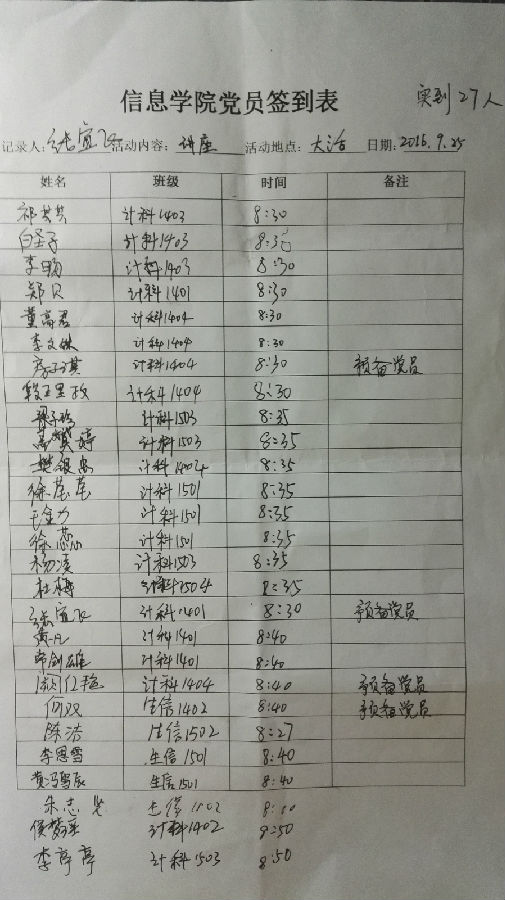 信息学院党员签到表 实到27人
记录人: 张宜飞 活动内容: 讲座 活动地点: 大活 日期: 2016.9.25
姓名 班级 时间 备注
祁英英 计科1403 8:30
白圣子 计科1403 8:30
李明 计科1403 8:30
郑贝 计科1401 8:30
董高君 计科1404 8:30
李文妹 计科1404 8:30
计科1404 8:30 预备党员
计科1404 8:30
计科1503 8:35
计科1503 8:35
计科1404 8:35
徐莹莹 计科1501 8:35
毛金力 计科1501 8:35
徐蕊 计科1501 8:35
杨凌 计科1503 8:35
杜梅 计科1504 8:35
张宜飞 计科1401 8:30 预备党员
黄凡 计科1401 8:40
常剑雄 计科1401 8:40
闵仁艳 计科1404 8:40 预备党员
何双 生信1402 8:40 预备党员
陈洁 生信1502 8:27
李恩雪 生信1501 8:40
黄冯雪辰 生信1501 8:40
朱志
计科1402 8:50
李亭亭 计科1503 8:50